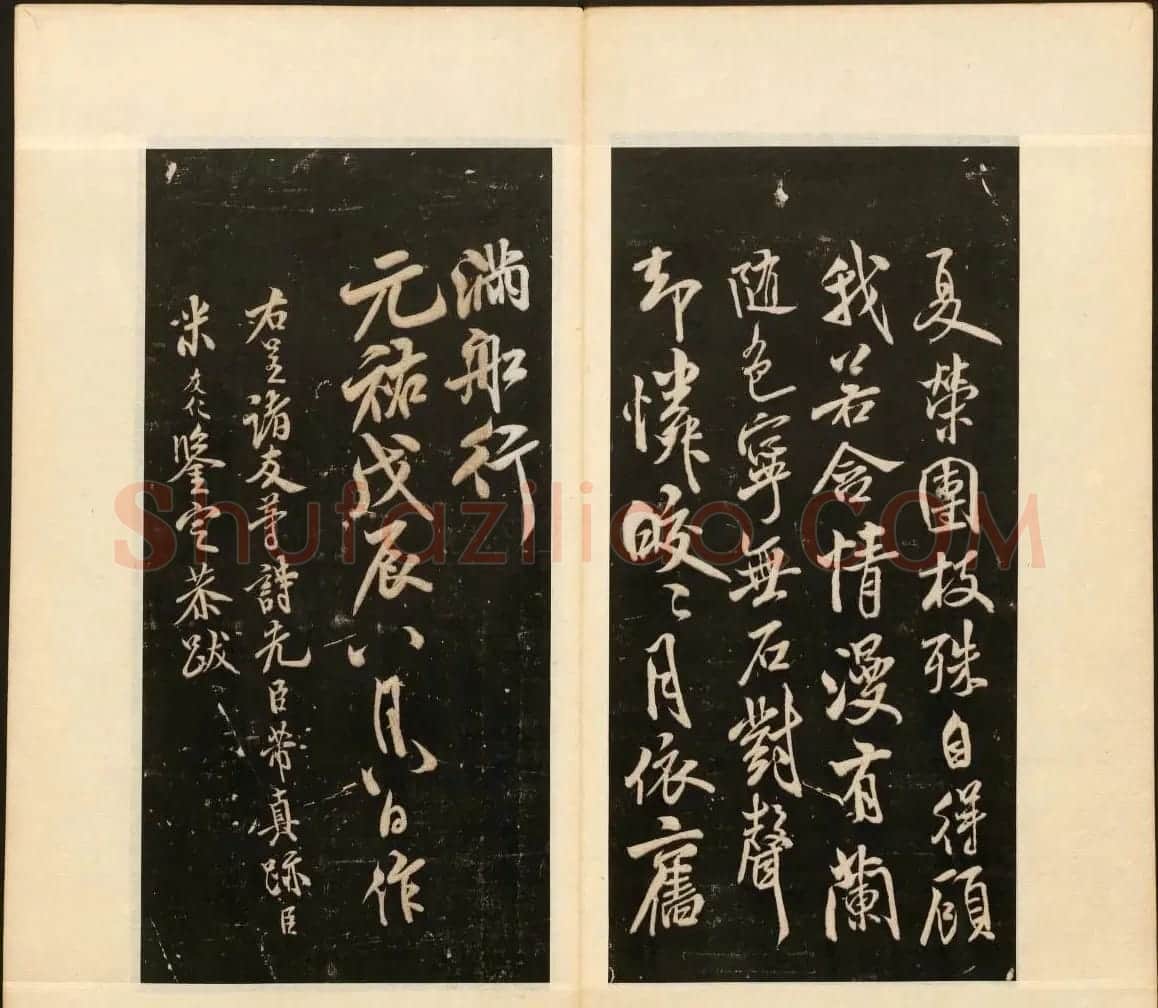 夏榮團枝殊自得顧
我若含情漫有蘭
隨色寧無石對聲
却憐皎〻月依舊
滿船行
元祐戊辰八月八日作
右呈諸友等詩先臣芾真跡臣
米友仁鑒定恭跋
Shufaziliao.COM